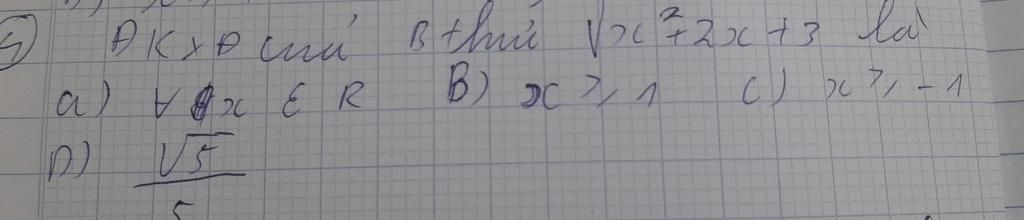 5) ĐKXĐ của B thức √x²+2x+3 là
a) ∀ x ∈ R B) x ⩾ 1 C) x ⩾ -1
D) √5/5